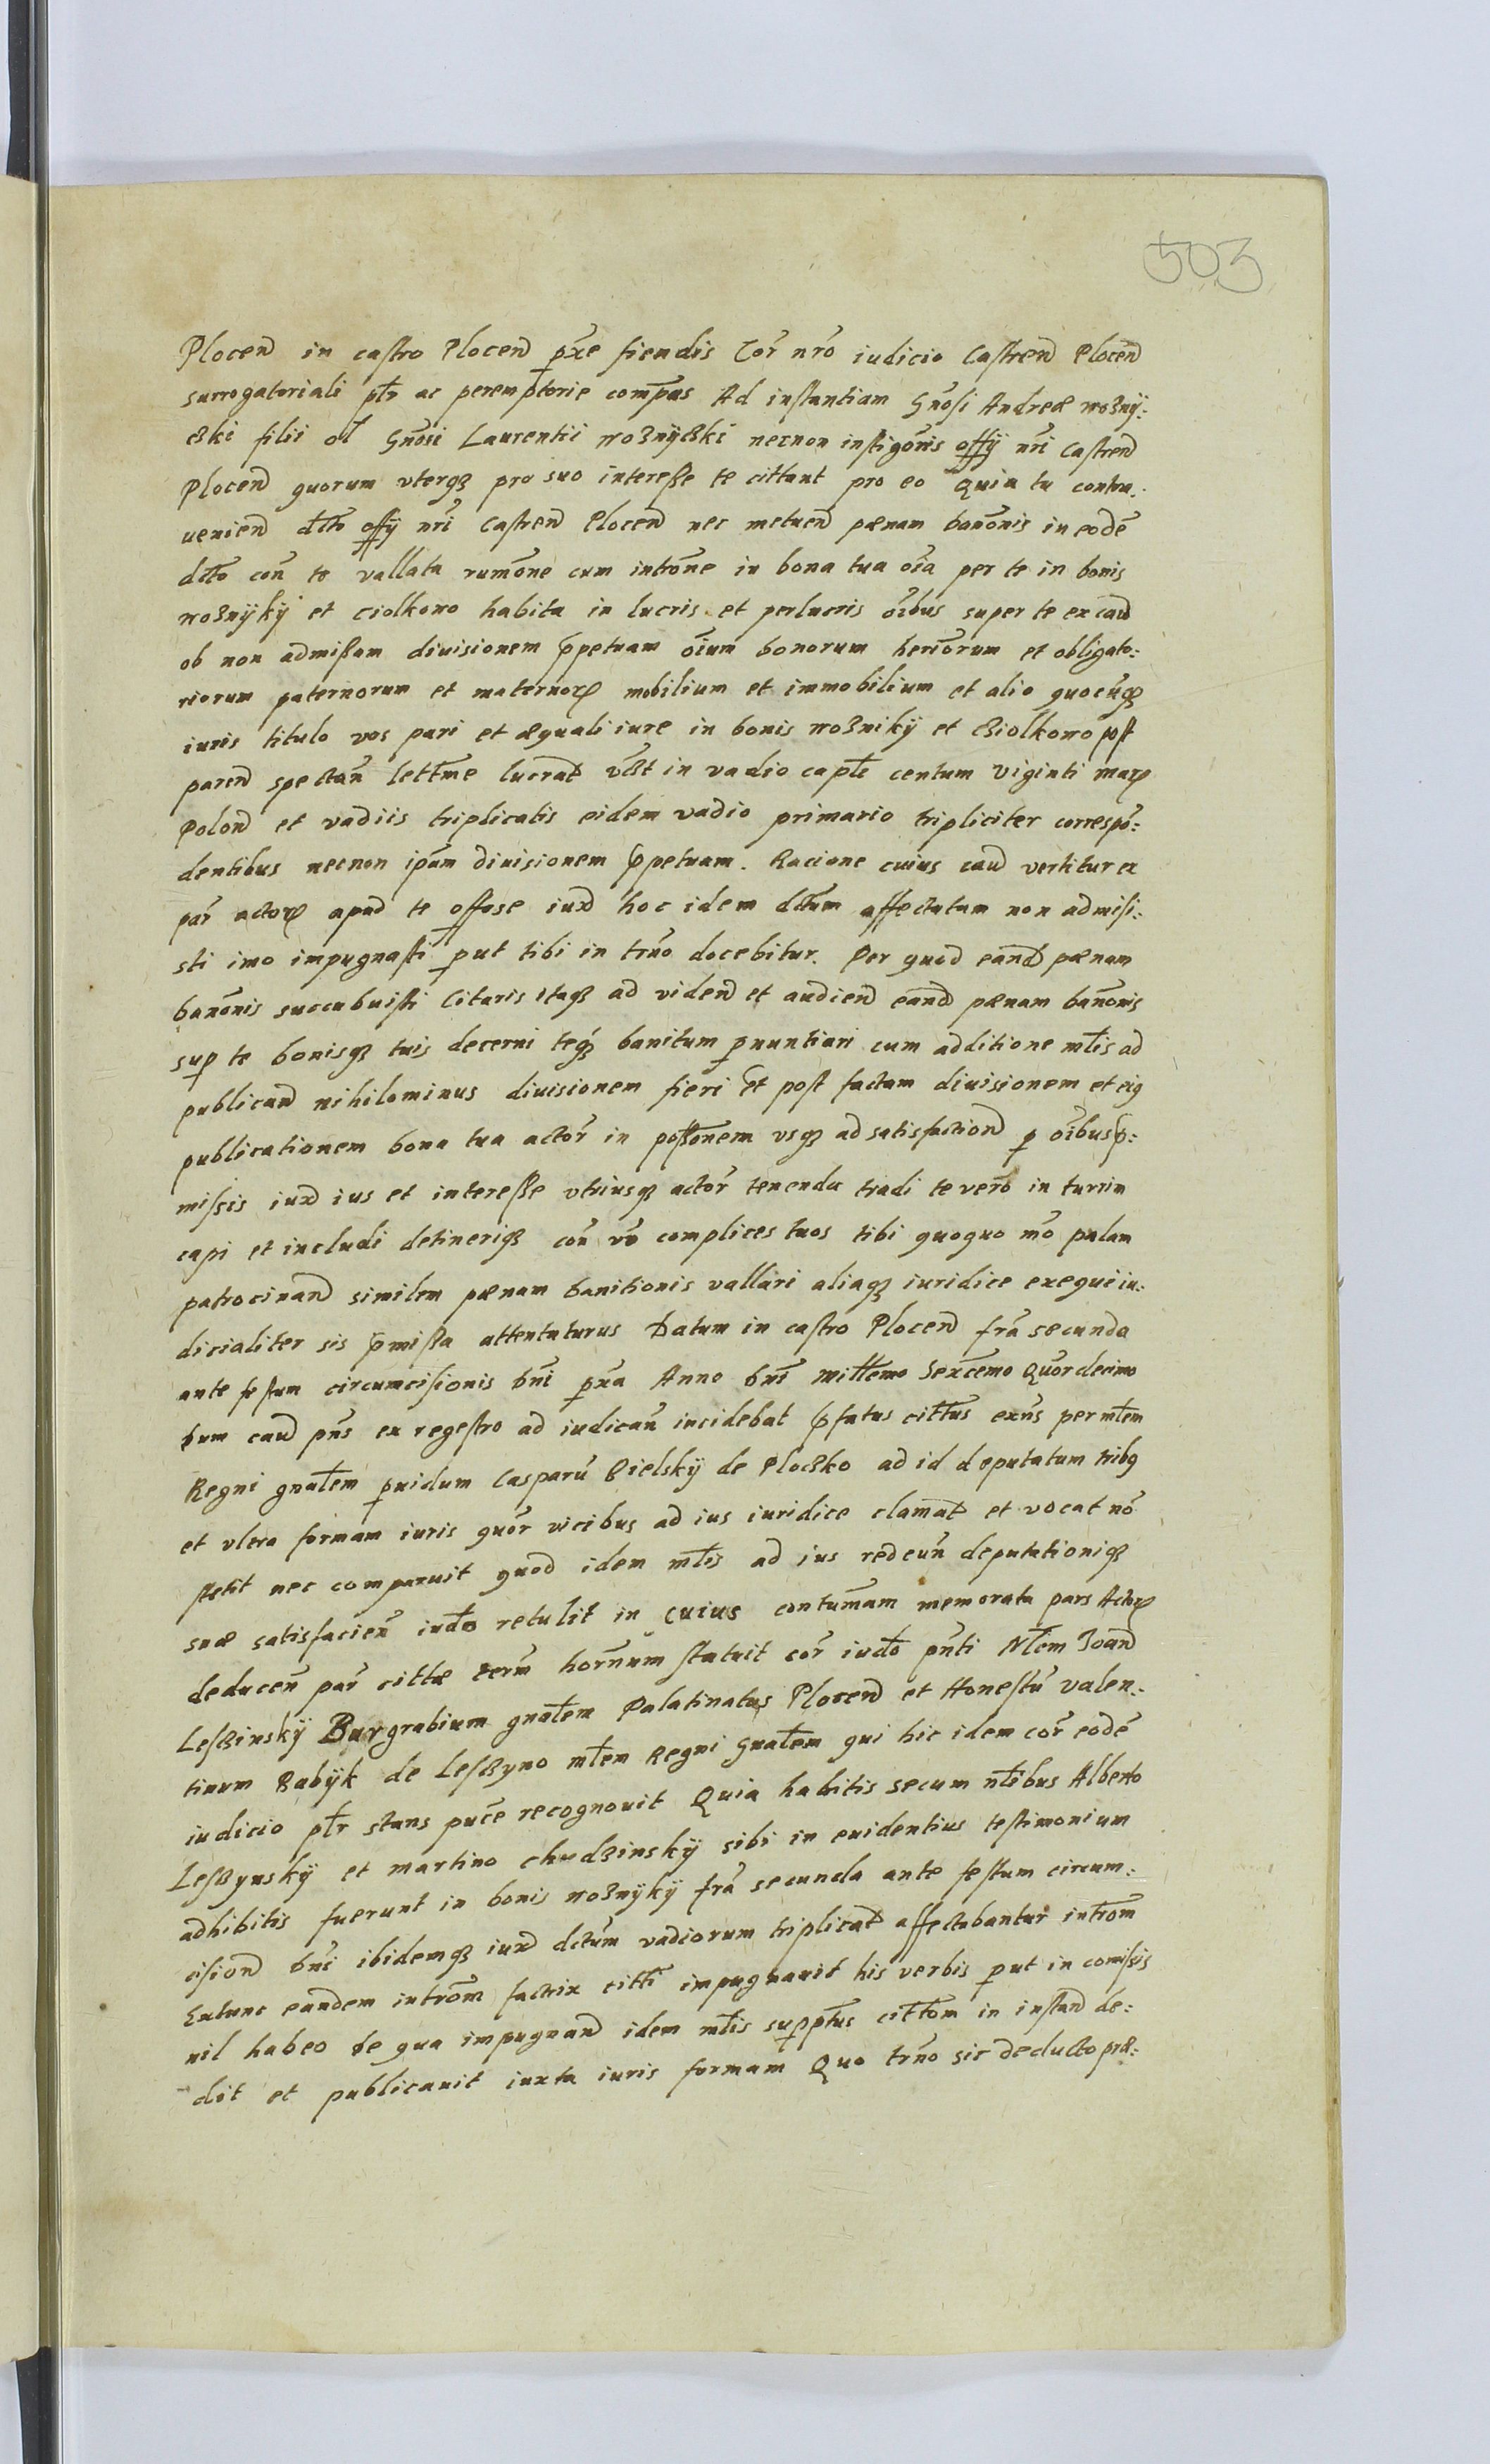 503
Plocen in castro Plocen pxe fiendis Cor nro iudicio Castren Plocen
surrogatoriali ptr ac peremptorie compas Ad instantiam Gnosi Andreæ wozny:
czki filii ol Gnosi Laurentii woznyczki necnon instigoris offy nri Castren
Plocen quorum vterqz pro suo interesse te cittant pro eo Quia tu contra.
uenien dcto offy nri Castren Plocen nec metuen pænam banonis in eode
dcto con te vallata rumone cum introne in bona tua oia per te in bonis
woznyky et Ciolkowo habita in lucris et perlucris oibus super te ex cau
ob non admissam diuisionem ppetuam oium bonorum heriorum et obligato:
riorum paternorum et maternorz mobilium et immobilium et alio quocuqz
iuris titulo vos pari et æquali iure in bonis wozniky et Cziolkowo post
paren spectan lettme lucrat vczt in vadio caplt centum viginti marz
Polon et vadiis triplicatis eidem vadio primario tripliciter correspo:
dentibus necnon ipam diuisionem ppetuam. Racione cuius cau vertitur ex
par actorz apud te offose iux hoc idem dctum affectatam non admisi:
sti imo impugnasti put tibi in trno docebitur. Per quod eand pænam
banonis succubuisti Citaris itaqz ad viden et audien eand pænam banonis
sup te bonisqz tuis decerni teqz banitum pnuntiari cum additione mtis ad
publican nihilominus diuisionem fieri et post factam diuisionem et eig
publicationem bona tua actor in possonem vsqz ad satisfaction p oibus p:
missis iux ius et interesse vtriusqz actor tenenda tradi te vero in turrim
capi et includi detineriqz con vo complices tuos tibi quoquo mo palam
patrocinan similem pænam banitionis vallari aliaqz iuridice exequi iu:
dicialiter sis pmissa attentaturus Datum in castro Plocen fra secunda
ante festum circumcisionis Dni pxa Anno Dni Mittemo Sexcemo Quordecimo
Dum cau pns ex regestro ad iudican incidebat pfatus cittus exns per mtem
Regni gnatem puidum Casparu Bielsky de Ploczko ad id deputatum tribg
et vltra formam iuris quor vicibus ad ius iuridice clamat et vocat no
stetit nec comparuit quod idem mtis ad ius redeun deputationiqz
suæ satisfacien iudo retulit in cuius contumam memorata pars Actorz
deducen par cittæ term hornum statuit cor iudo pnti Ntem Joan
Leszinsky Burgrabium gnatem Palatinatus Plocen et Honestu valen:
tinum Babyk de Leszyno mtem Regni Gnatem qui hic idem cor eode
iudicio ptr stans puce recognouit Quia habitis secum ntibus Alberto
Leszynsky et martino chudzinsky sibi in euidentius testimonium
adhibitis fuerunt in bonis woznyky fra secunda ante festum circum:
cision Dni ibidemqz iux dctum vadiorum triplicat affectabantur introm
Extunc eandem introm factrix citti impugnauit his verbis put in comissis
nil habeo de qua impugnan idem mtis supptus cittom in instan de:
dit et publicauit iuxta iuris formam Quo trno sic deducto præ: